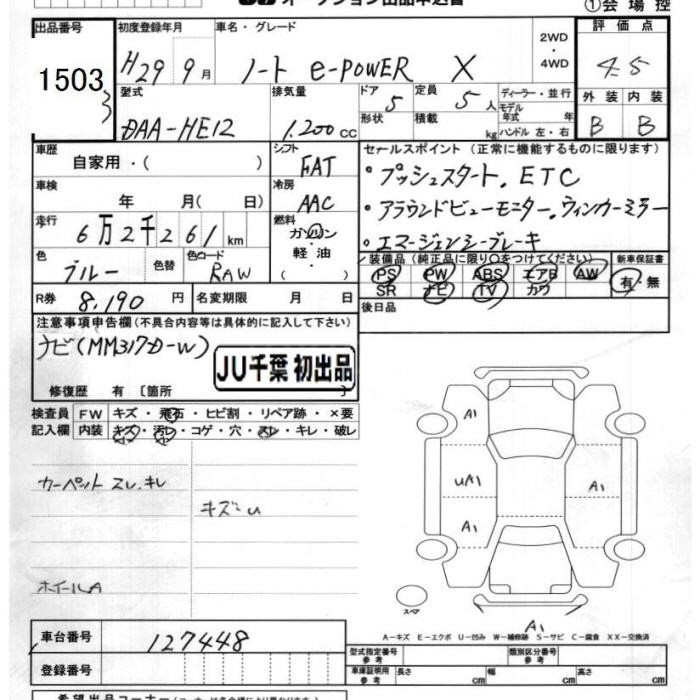 オークション出品申込書
①会場控
出品番号 初度登録年月 車名・グレード 評価点
1503 H29 9月 ノート e-POWER X 2WD・4WD 4.5
型式 排気量 ドア 5 定員 5人 ディーラー・並行 外装 内装
DAA-HE12 1.200cc 形状 積載 kg モデル年式 年 ハンドル 左・右 B B
車歴 シフト セールスポイント (正常に機能するものに限ります)
自家用・( ) FAT ・プッシュスタート. ETC
車検 年 月( 日) 冷房 AAC ・アラウンドビューモニター.ウィンカーミラー
走行 6万2千261km 燃料 ガソリン・軽油・( ) ・エマージェンシーブレーキ
色 ブルー 色替 色コード RAW 装備品(純正品に限り○をつけてください) 新車保証書
PS PW ABS エアB AW 有・無
SR ナビ TV カワ
R券 8,190円 名変期限 月 日 後日品
注意事項申告欄(不具合内容等は具体的に記入して下さい)
ナビ(MM317D-W)
JU千葉 初出品
修復歴 有〔箇所 〕
検査員 FW キズ・飛石・ヒビ割・リペア跡・×要
記入欄 内装 キズ・汚レ・コゲ・穴・スレ・キレ・破レ
カーペット スレ.キレ
キズ U
ホイールA
A1
UA1
A1
A1
スペア
A1
A-キズ E-エクボ U-凹み W-補修跡 S-サビ C-腐食 XX-交換済
車台番号 127448
型式指定番号 参考 類別区分番号 参考
登録番号 車庫証明用 参考 長さ cm 幅 cm 高さ cm
希望出品コーナー